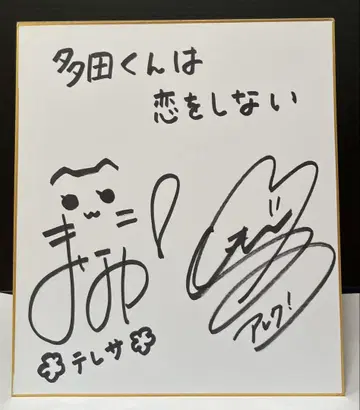 多田くんは
恋をしない
まみや!
テレサ
アレク!